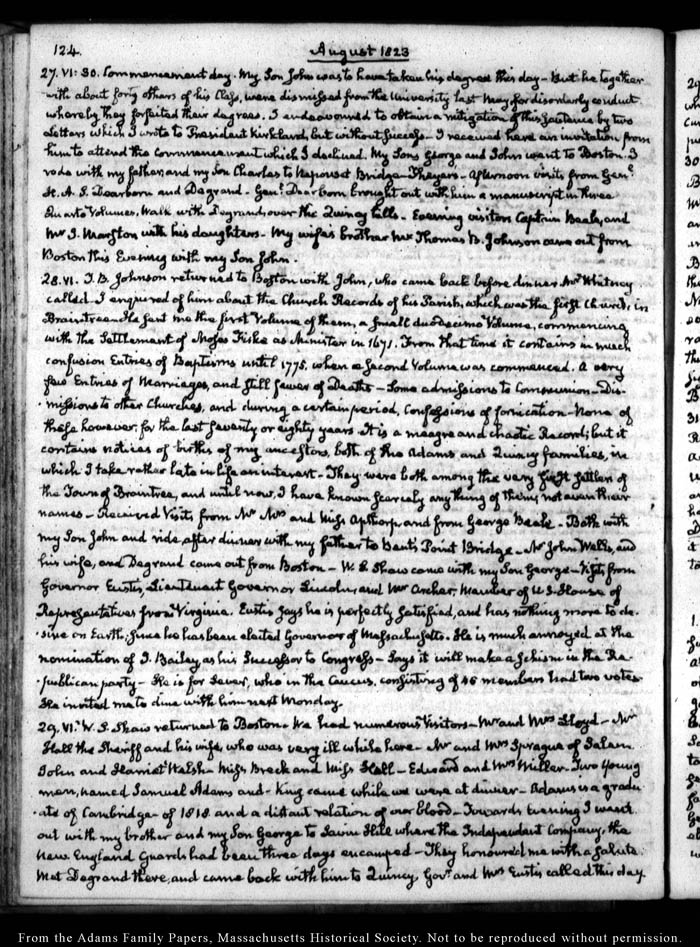 124.
August 1823
27. VI: 30. Commencement day. My Son John was to have taken his degree this day – But he together
with about forty others of his Class, were dismissed from the University last May for disorderly conduct
whereby they forfeited their degrees. I endeavoured to obtain a mitigation of this sentence by two
Letters which I wrote to President Kirkland, but without success – I received here an invitation from
him to attend the Commencement which I declined. My Sons George and John went to Boston. I
rode with my father, and my Son Charles to Neponset Bridge – Thayer's – Afternoon visits from Genl.
H. A. S. Dearborn and Degrand – Genl. Dearborn brought out with him a manuscript in three
Quarto Volumes, Walk with Degrand, over the Quincy hills – Evening visitors Captain Beale, and
Mr J. Marston with his daughters – My wife's brother Mr Thomas B. Johnson came out from
Boston this Evening with my Son John.
28. VI. T. B. Johnson returned to Boston with John, who came back before dinner Mr Whitney
called. I enquired of him about the Church Records of his Parish, which was the first Church, in
Braintree – He sent me the first Volume of them, a small duodecimo Volume, commencing
with the Settlement of Moses Fiske as Minister in 1671. From that time it contains in much
confusion Entries of Baptisms until 1775, when a second Volume was commenced. A very
few Entries of Marriages, and still fewer of Deaths – Some admissions to Communion – Dis-
missions to other Churches, and during a certain period, Confessions of fornication – None of
these however, for the last seventy or eighty years. It is a meagre and chaotic Record; but it
contains notices of births of my ancestors, both of the Adams and Quincy families, in
which I take rather late in life an interest – They were both among the very first settlers of
the Town of Braintree, and until now, I have known scarcely any thing of them, not even their
names – Received Visits from Mr Mrs and Miss Apthorp, and from George Beale – Bath with
my Son John and ride after dinner with my father to Bent's Point Bridge – Mr John Welles, and
his wife, and Degrand came out from Boston – W. S. Shaw came with my Son George – Visit from
Governor Eustis, Lieutenant Governor Lincoln, and Mr Archer, Member of U. S. House of
Representatives from Virginia. Eustis says he is perfectly satisfied, and has nothing more to de-
sire on Earth, since he has been elected Governor of Massachusetts. He is much annoyed at the
nomination of J. Bailey, as his Successor to Congress – Says it will make a schism in the Re-
publican party – He is for Sever, who in the Caucus, consisting of 46 members had two votes
He invited me to dine with him next Monday.
29. VI. W. S. Shaw returned to Boston – We had numerous Visitors – Mr and Mrs Lloyd – Mr
Hall the Sheriff and his wife, who was very ill while here – Mr and Mrs Sprague of Salem
John and Harriet Welsh Miss Breck and Miss Hall – Edward and Mrs Miller. Two young
men, named Samuel Adams and – King came while we were at dinner – Adams is a gradu-
ate of Cambridge of 1818 and a distant relation of our blood – Towards Evening I went
out with my brother and my Son George to Savin Hill where the Independent Company, the
New England Guards had been three days encamped – They honoured me with a salute.
Met Degrand there, and came back with him to Quincy, Govr. and Mrs Eustis called this day.
From the Adams Family Papers, Massachusetts Historical Society. Not to be reproduced without permission.